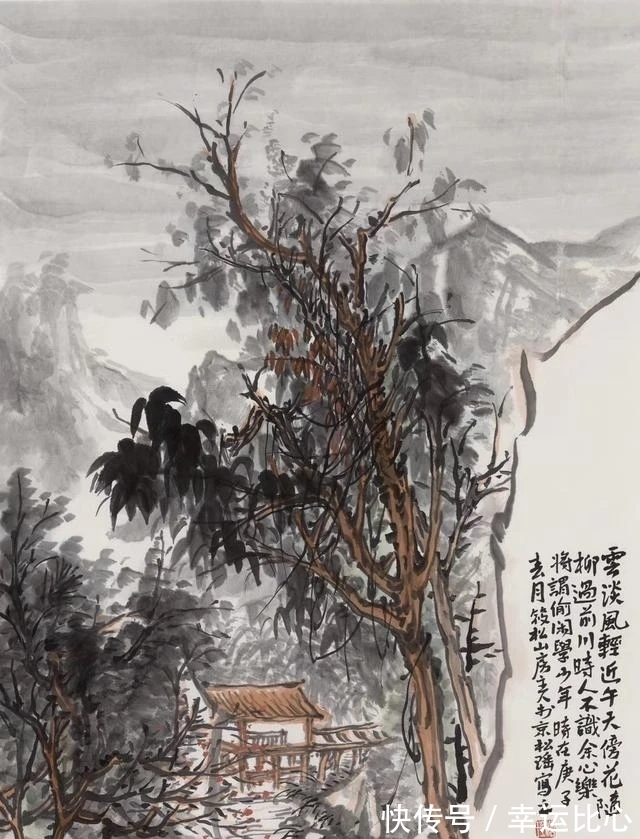 雲淡風輕近午天傍花隨
柳過前川時人不識余心樂
將謂偷閑學少年 時在庚子
春月 松山房主人 京 松 寫
快传号／幸运比心